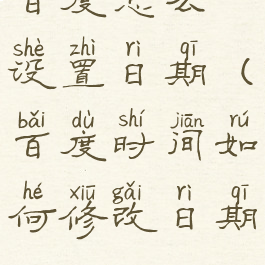 百度怎么
shè zhì rì qī
设置日期（
bǎi dù shí jiān rú
百度时间如
hé xiū gǎi rì qī
何修改日期